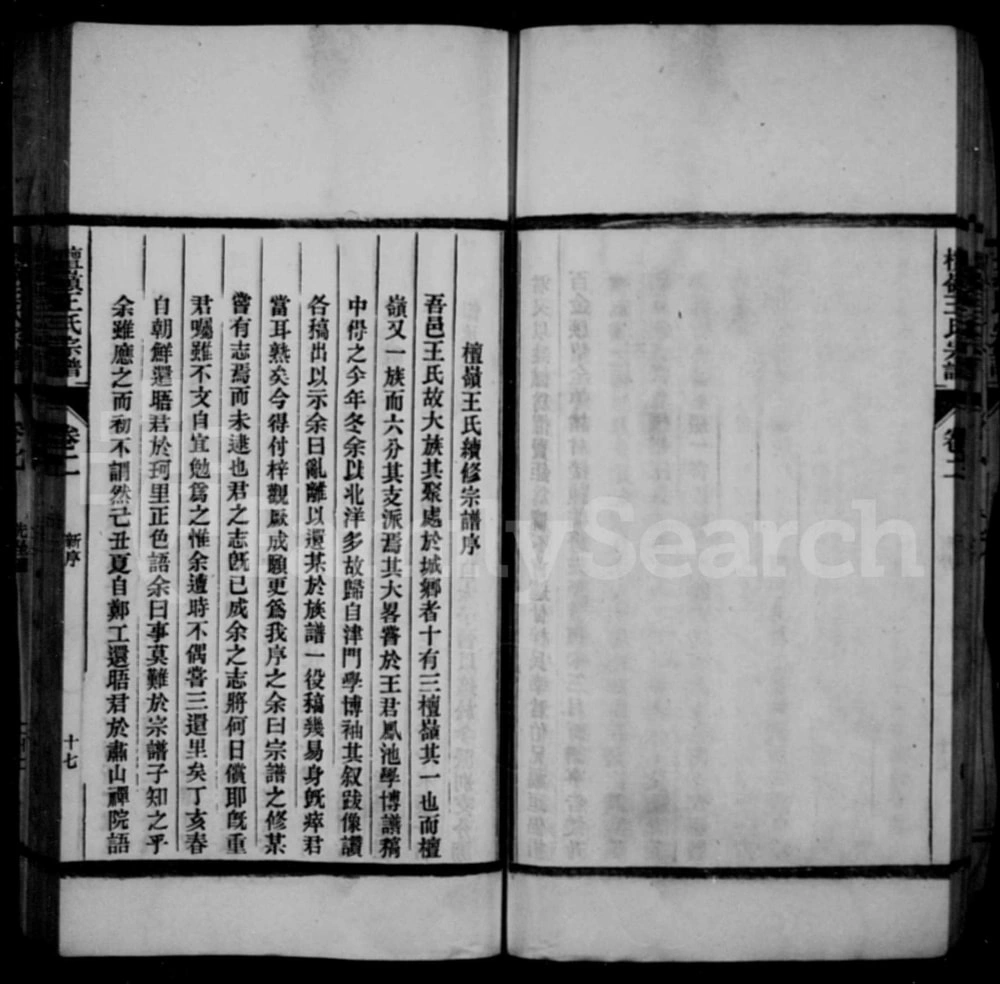 檀嶺王氏宗譜
卷二
檀嶺王氏續修宗譜序
吾邑王氏故大族其聚處於城鄉者十有三檀嶺其一也而檀
嶺又一族而六分其支派焉其大畧嘗於王君鳳池學博譜稿
中得之今年冬余以北洋多故歸自津門學博袖其叙跋像讚
各稿出以示余曰亂離以還某於族譜一役稿幾易身既瘁君
當耳熟矣今得付梓觀厥成願更為我序之余曰宗譜之修某
嘗有志焉而未逮也君之志既已成余之志將何日償耶既重
君囑雖不文自宜勉為之惟余遭時不偶嘗三還里矣丁亥春
自朝鮮還晤君於珂里正色語余曰事莫難於宗譜子知之乎
余雖應之而初不謂然己丑夏自鄭工還晤君於肅山禪院語
檀嶺王氏宗譜
卷二
新序
十七
FamilySearch